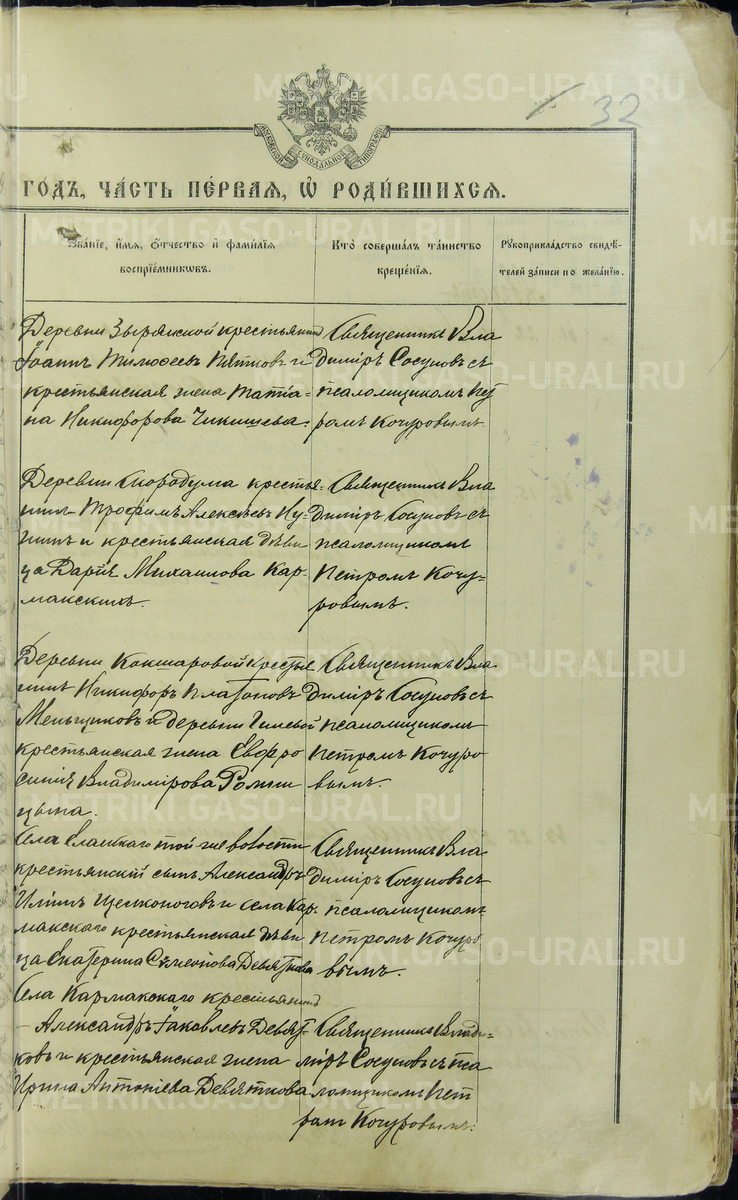 32
МОСКОВСКОЙ СИНОДАЛЬНОЙ ТИПОГРАФІИ
ГОДЪ, ЧАСТЬ ПЕРВАЯ, Ѡ РОДИВШИХСЯ.
Званіе, имя, отчество и фамилія воспріемниковъ.
Кто совершалъ таинство крещенія.
Рукоприкладство свидѣтелей записи по желанію.
Деревни Зырянской крестьянин
Іоаннъ Тимофеевъ Пятковъ и
крестьянская жена Татіа-
на Никифорова Чикишева.
Священникъ Вла
димиръ Сосуновъ съ
псаломщикомъ Пет
ромъ Кочуровымъ
Деревни Скородума крестья-
нинъ Трофимъ Алексѣевъ
и крестьянская дѣви
ца Дарія Михаилова Кар-
макскихъ.
Священникъ Вла
димиръ Сосуновъ съ
псаломщикомъ
Петромъ Кочу-
ровымъ.
Деревни Кокшаровой крестья
нинъ Никифоръ Платоновъ
Меньщиковъ и деревни Гилевой
крестьянская жена Евфро
синія Владимірова
Священникъ Вла
димиръ Сосуновъ съ
псаломщикомъ
Петромъ Кочуро
вымъ.
Села Еланскаго той же волости
крестьянскій сынъ Александръ
Иліинъ Щелконоговъ и села Кар-
макскаго крестьянская дѣви
ца Екатерина Симеонова Девяткова
Священникъ Вла
димиръ Сосуновъ съ
псаломщикомъ
Петромъ Кочуро
вымъ.
Села Кармакскаго крестьянинъ
Александръ Іаковлевъ Девят-
ковъ и крестьянская жена
Ирина Антоніева Девяткова
Священникъ Влади-
міръ Сосуновъ съ пса
ломщикомъ Пет
ромъ Кочуровымъ.
METRIKI.GASO-URAL.RU